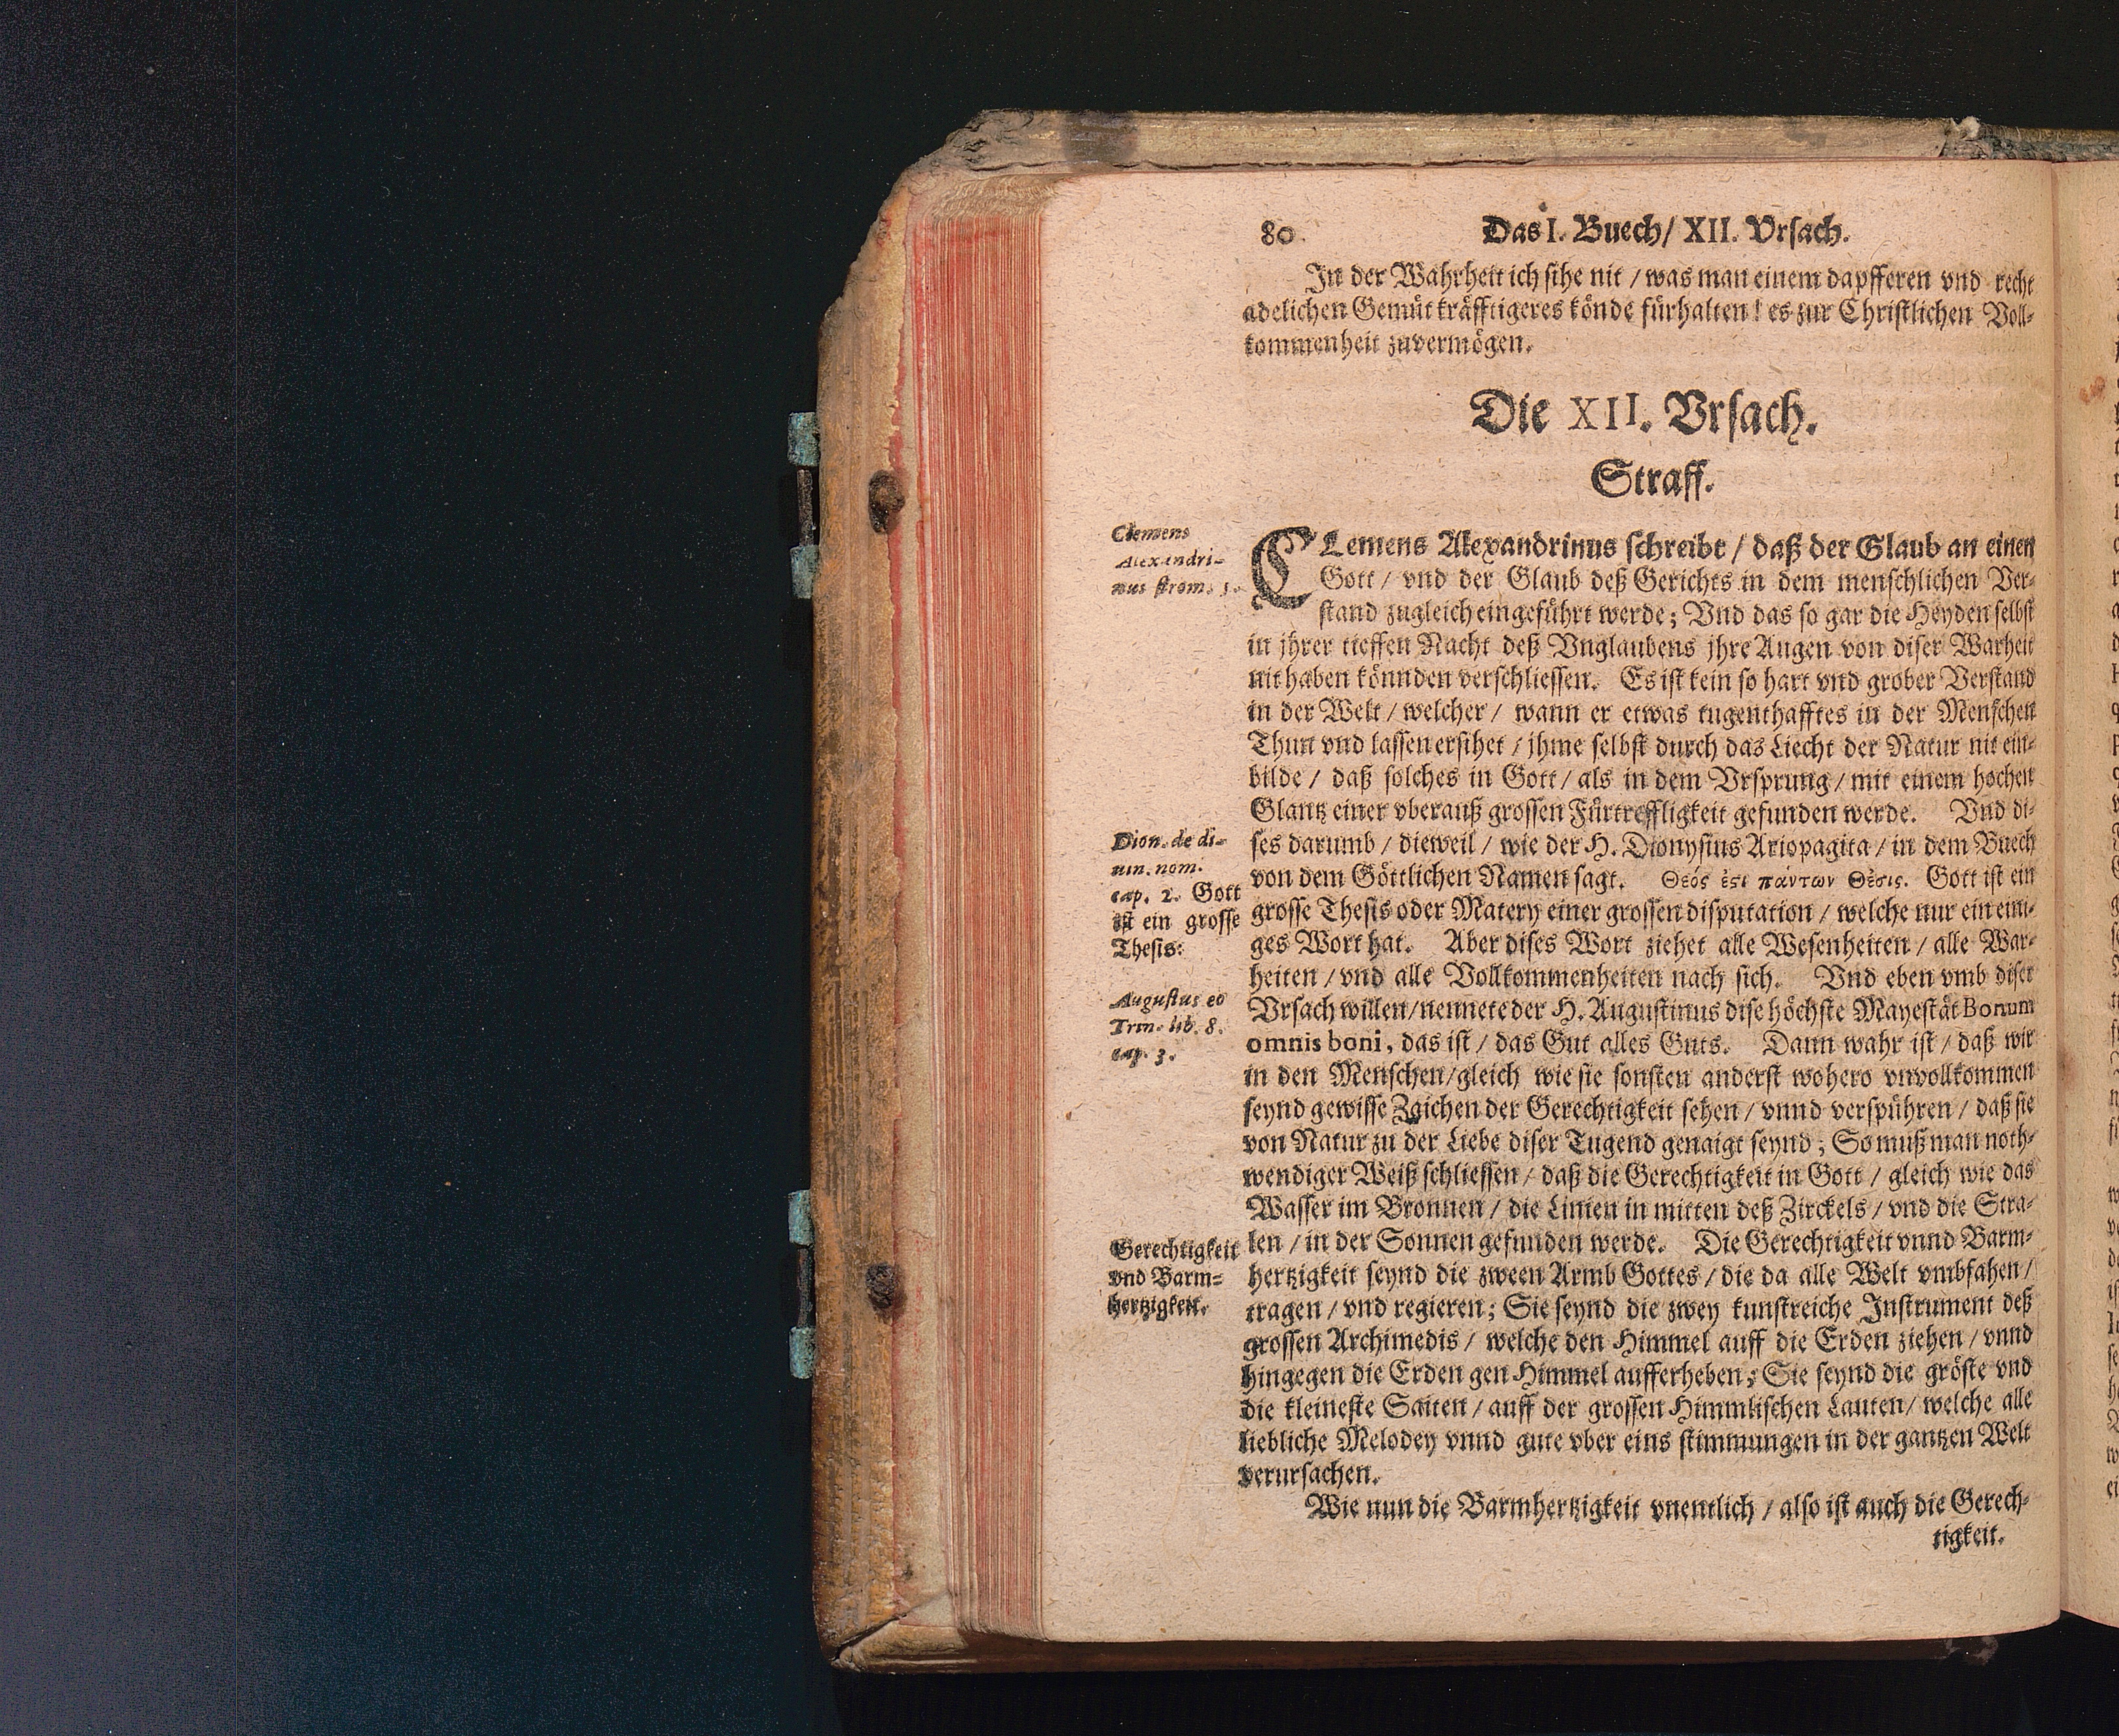 80. Das I. Buech/ XII. Vrsach.
In der Wahrheit ich sihe nit / was man einem dapfferen vnd recht
adelichen Gemüt kräfftigeres könde fürhalten! es zur Christlichen Voll-
kommenheit zuvermögen.
Die XII. Vrsach.
Straff.
Clemens
Alexandri-
nus strom. 5.
CLemens Alexandrinus schreibt / daß der Glaub an einen
Gott / vnd der Glaub deß Gerichts in dem menschlichen Ver-
stand zugleich eingeführt werde; Vnd das so gar die Heyden selbst
in jhrer tieffen Nacht deß Vnglaubens jhre Augen von diser Warheit
nit haben könnden verschliessen. Es ist kein so hart vnd grober Verstand
in der Welt / welcher / wann er etwas tugenthafftes in der Menschen
Thun vnd lassen ersihet / jhme selbst durch das Liecht der Natur nit ein-
bilde / daß solches in Gott / als in dem Vrsprung / mit einem hochen
Glantz einer vberauß grossen Fürtreffligkeit gefunden werde. Vnd di-
ses darumb / dieweil / wie der H. Dionysius Ariopagita / in dem Buech
von dem Göttlichen Namen sagt. Θεός ἐςι πάντων Θέσις. Gott ist ein
grosse Thesis oder Matery einer grossen disputation / welche nur ein eini-
ges Wort hat. Aber dises Wort ziehet alle Wesenheiten / alle War-
heiten / vnd alle Vollkommenheiten nach sich. Vnd eben vmb diser
Vrsach willen/nennete der H. Augustinus dise höchste Mayestät Bonum
omnis boni, das ist / das Gut alles Guts. Dann wahr ist / daß wir
in den Menschen/gleich wie sie sonsten anderst wohero vnvollkommen
seynd gewisse Zaichen der Gerechtigkeit sehen / vnnd verspühren / daß sie
von Natur zu der Liebe diser Tugend genaigt seynd; So muß man noth-
wendiger Weiß schliessen / daß die Gerechtigkeit in Gott / gleich wie das
Wasser im Bronnen / die Linien in mitten deß Zirckels / vnd die Stra-
len / in der Sonnen gefunden werde. Die Gerechtigkeit vnnd Barm-
hertzigkeit seynd die zween Armb Gottes / die da alle Welt vmbfahen /
tragen / vnd regieren; Sie seynd die zwey kunstreiche Instrument deß
grossen Archimedis / welche den Himmel auff die Erden ziehen / vnnd
hingegen die Erden gen Himmel aufferheben; Sie seynd die gröste vnd
die kleineste Saiten / auff der grossen Himmlischen Lauten/ welche alle
liebliche Melodey vnnd gute vber eins stimmungen in der gantzen Welt
verursachen.
Wie nun die Barmhertzigkeit vnentlich / also ist auch die Gerech-
tigkeit.
Dion. de di-
uin. nom.
cap. 2. Gott
ist ein grosse
Thesis:
Augustus eo
Trin. lib. 8.
cap. 3.
Gerechtigkeit
vnd Barm-
hertzigkeit.